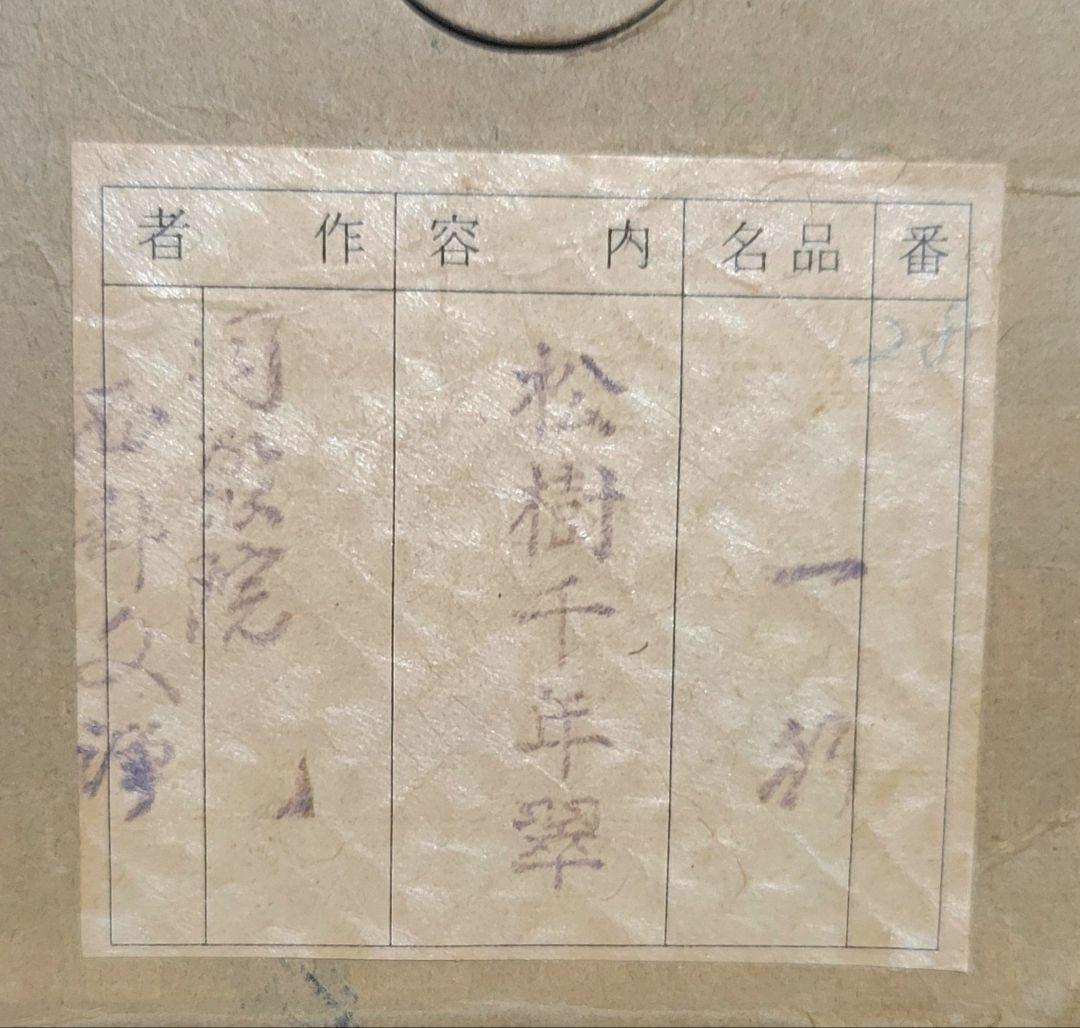 番
品名
内容
作者
28
一行
松樹千年翠
同聚院
西部文浄